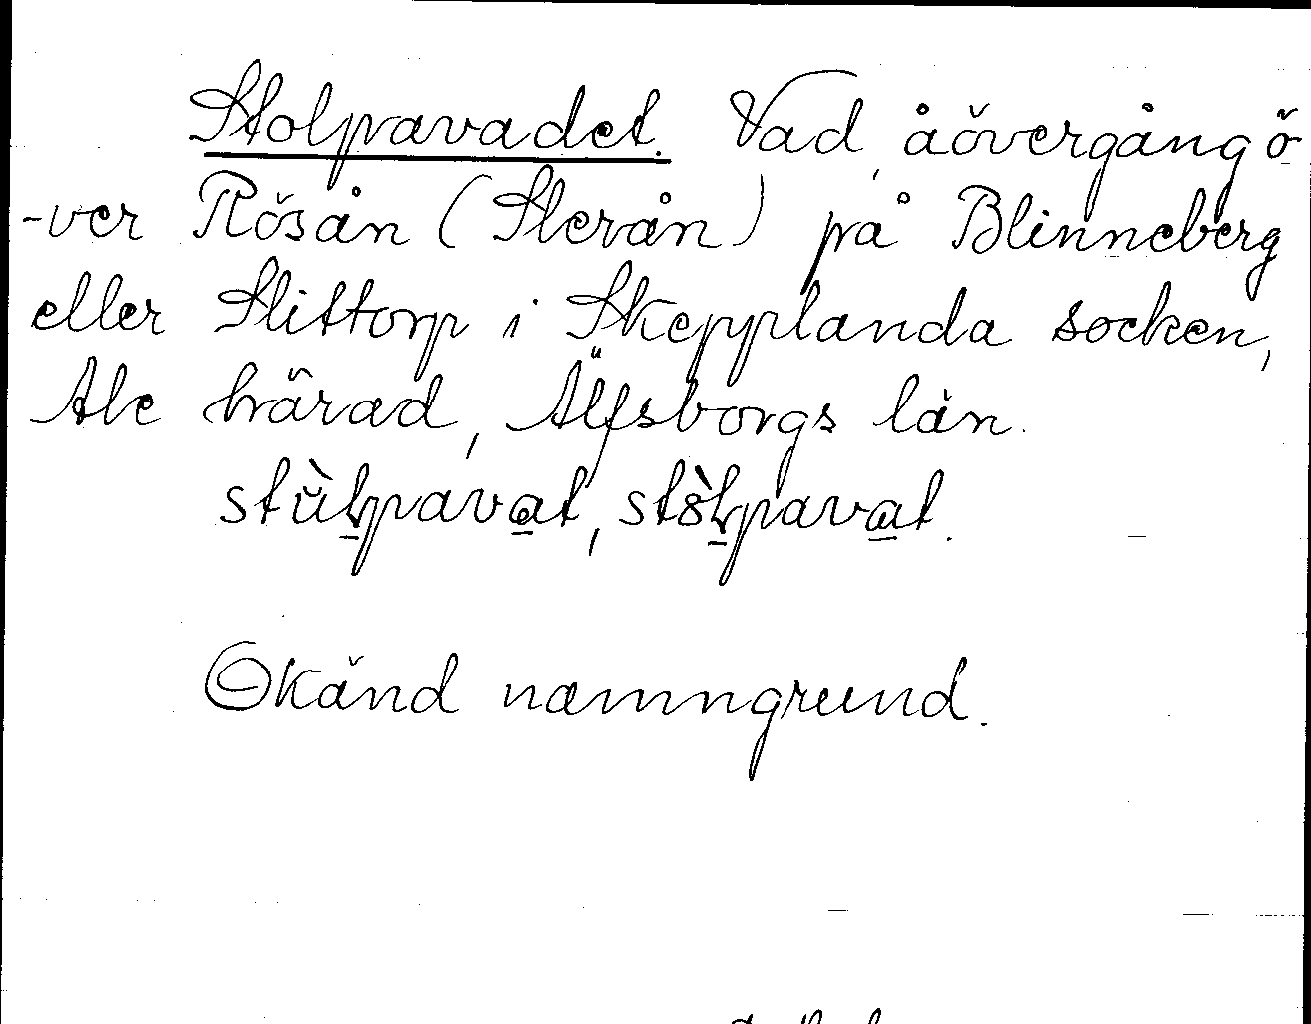 Stolpavadet. Vad, åövergång ö-
-ver Rösån (Slerån) på Blinneberg
eller Slittorp i Skepplanda socken,
Ale härad, Älfsborgs län.
stùlpavat, stòlpavat.
Okänd namngrund.